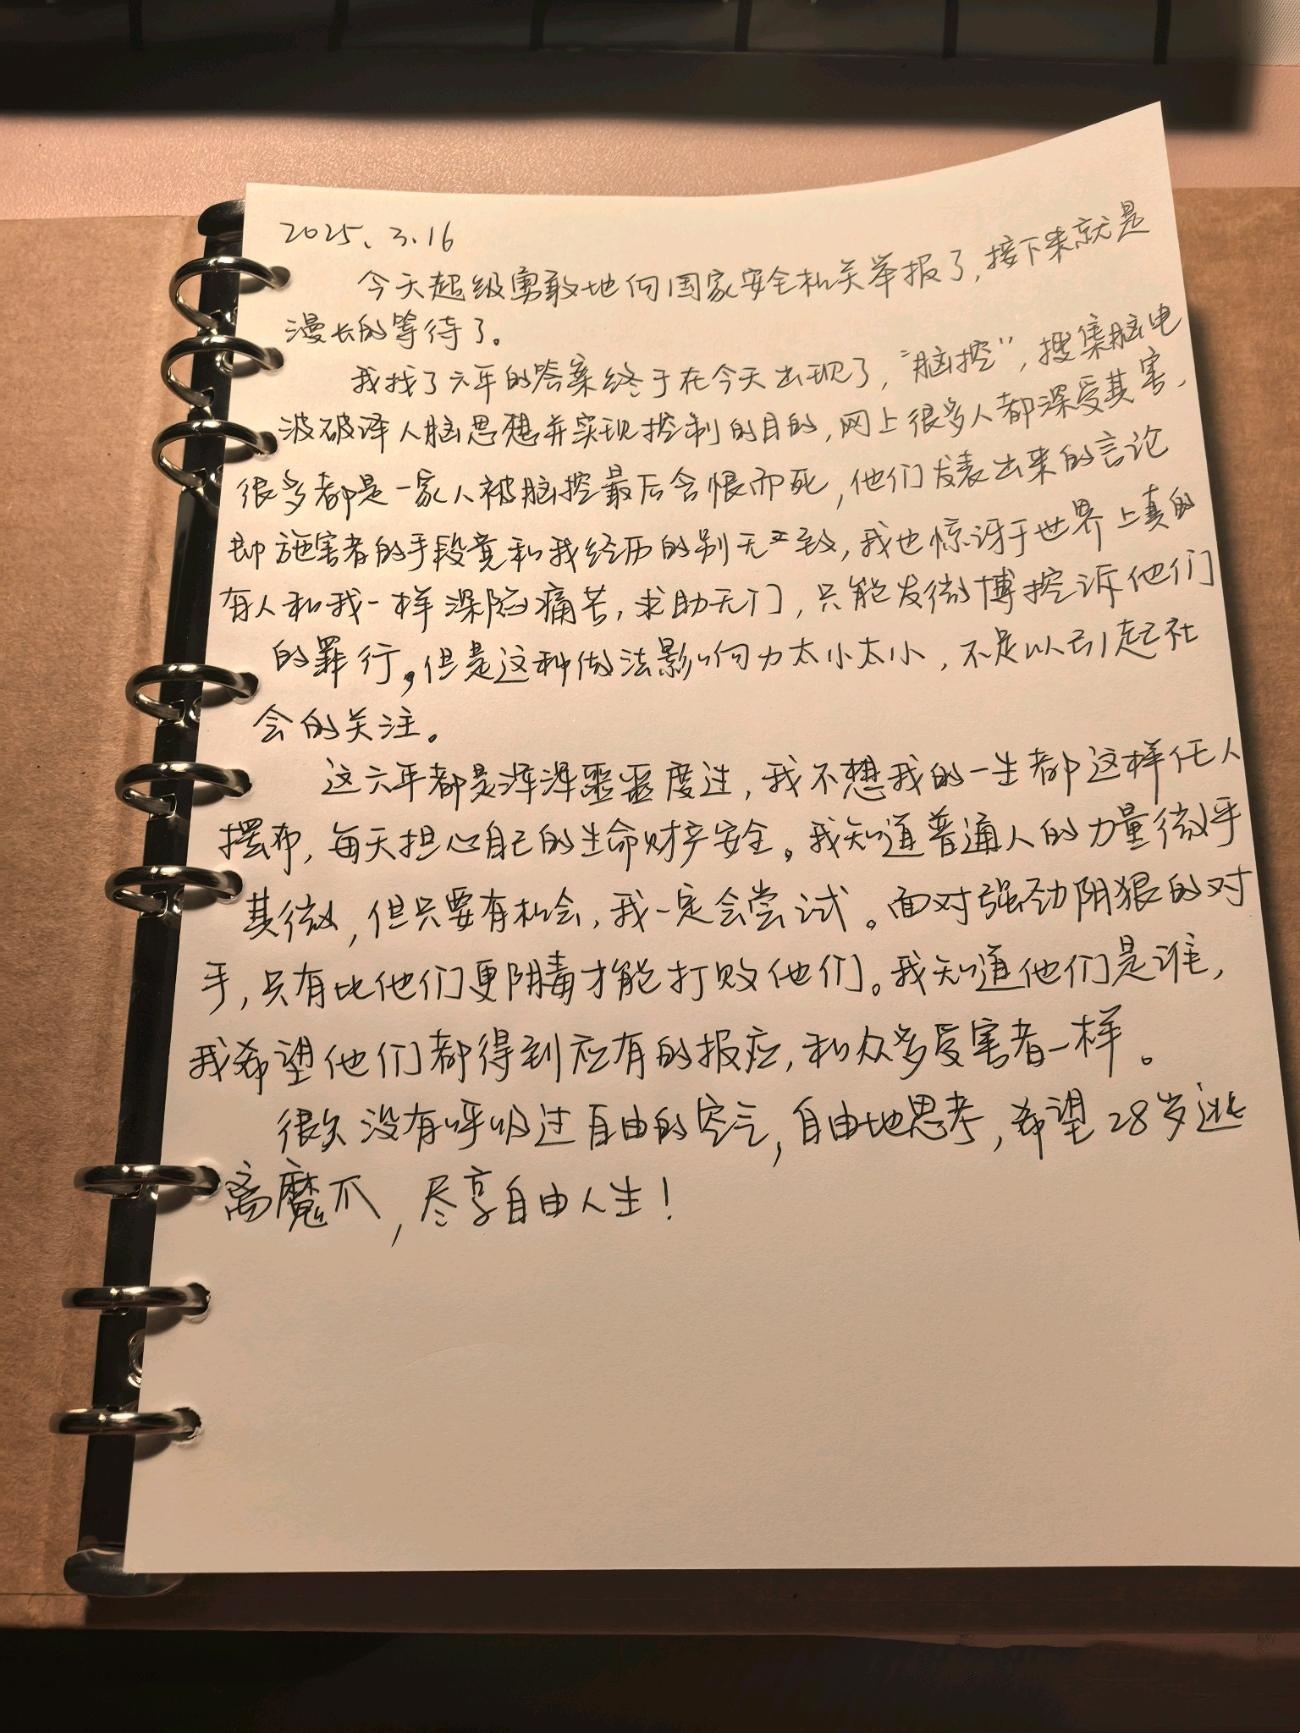 2025.3.16
今天超级勇敢地向国家安全机关举报了，接下来就是
漫长的等待了。
我找了六年的答案终于在今天出现了，“脑控”，搜集脑电
波破译人脑思想并实现控制的目的，网上很多人都深受其害，
很多都是一家人被脑控最后含恨而死，他们发表出来的言论
和施害者的手段竟和我经历的别无二致，我也惊讶于世界上真的
有人和我一样深陷痛苦，求助无门，只能发微博控诉他们
的罪行，但是这种做法影响力太小太小，不足以引起社
会的关注。
这六年都是浑浑噩噩度过，我不想我的一生都这样任人
摆布，每天担心自己的生命财产安全。我知道普通人的力量微乎
其微，但只要有机会，我一定会尝试。面对强劲阴狠的对
手，只有比他们更阴毒才能打败他们。我知道他们是谁，
我希望他们都得到应有的报应，和众多受害者一样。
很久没有呼吸过自由的空气，自由地思考，希望28岁逃
离魔爪，尽享自由人生！